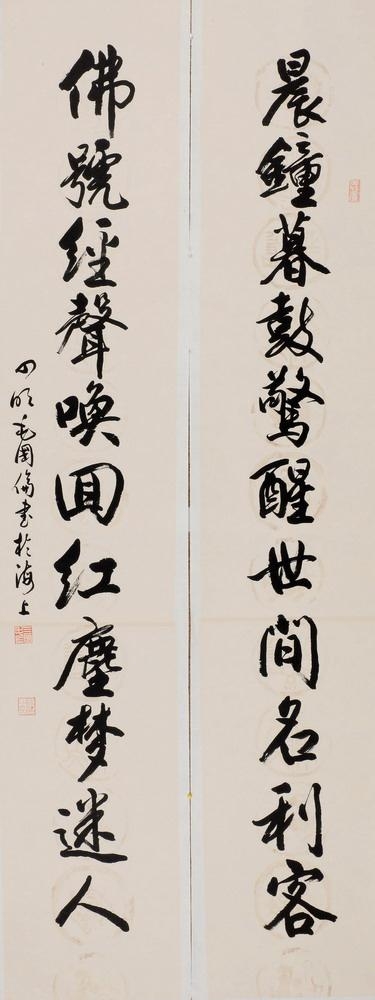 晨鐘暮鼓驚醒世間名利客
佛號經聲喚回紅塵梦迷人
四明毛國倫書於海上